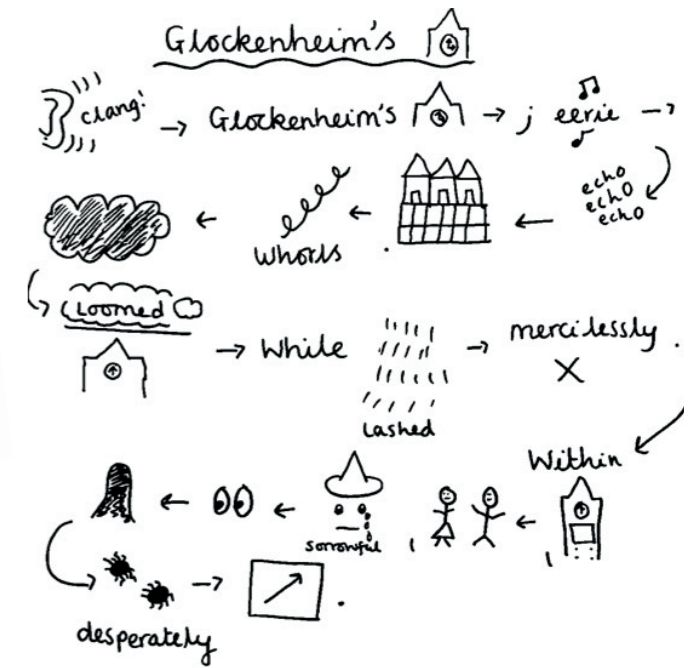 Glockenheim's
clang! Glockenheim's j eerie
echo
echo
echo
whorls .
Loomed
While mercilessly .
Lashed
Within
, sorrowful , ,
desperately .